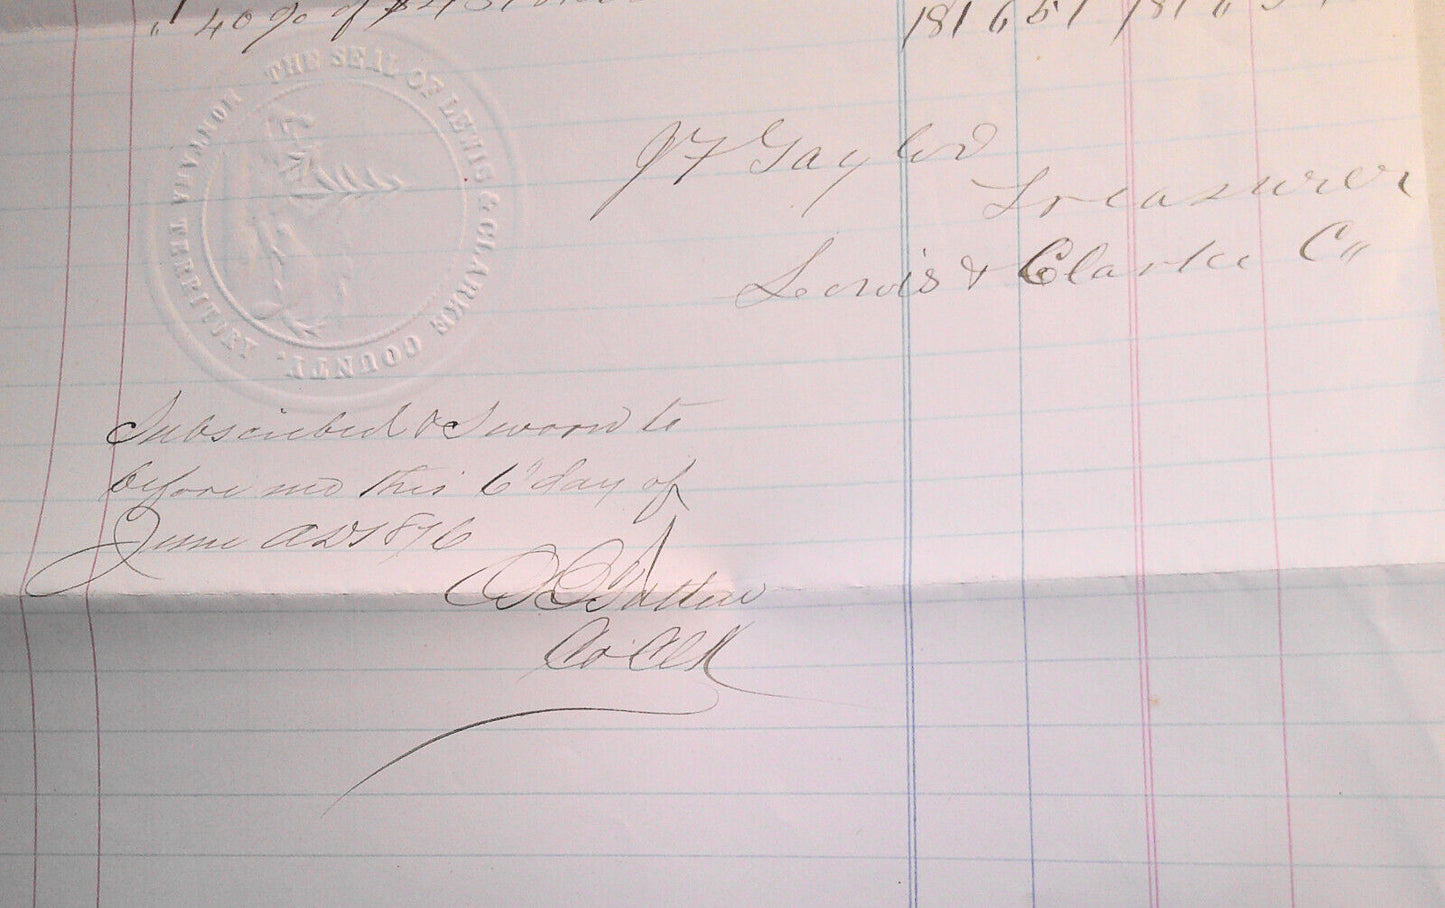 " 40 % of $
THE SEAL OF LEWIS & CLARKE COUNTY.
MONTANA TERRITORY
J F Taylor
Treasurer
Lewis & Clarke Co
Subscribed & Sworn to
before me this 6" day of
June AD 1876
Co Clk